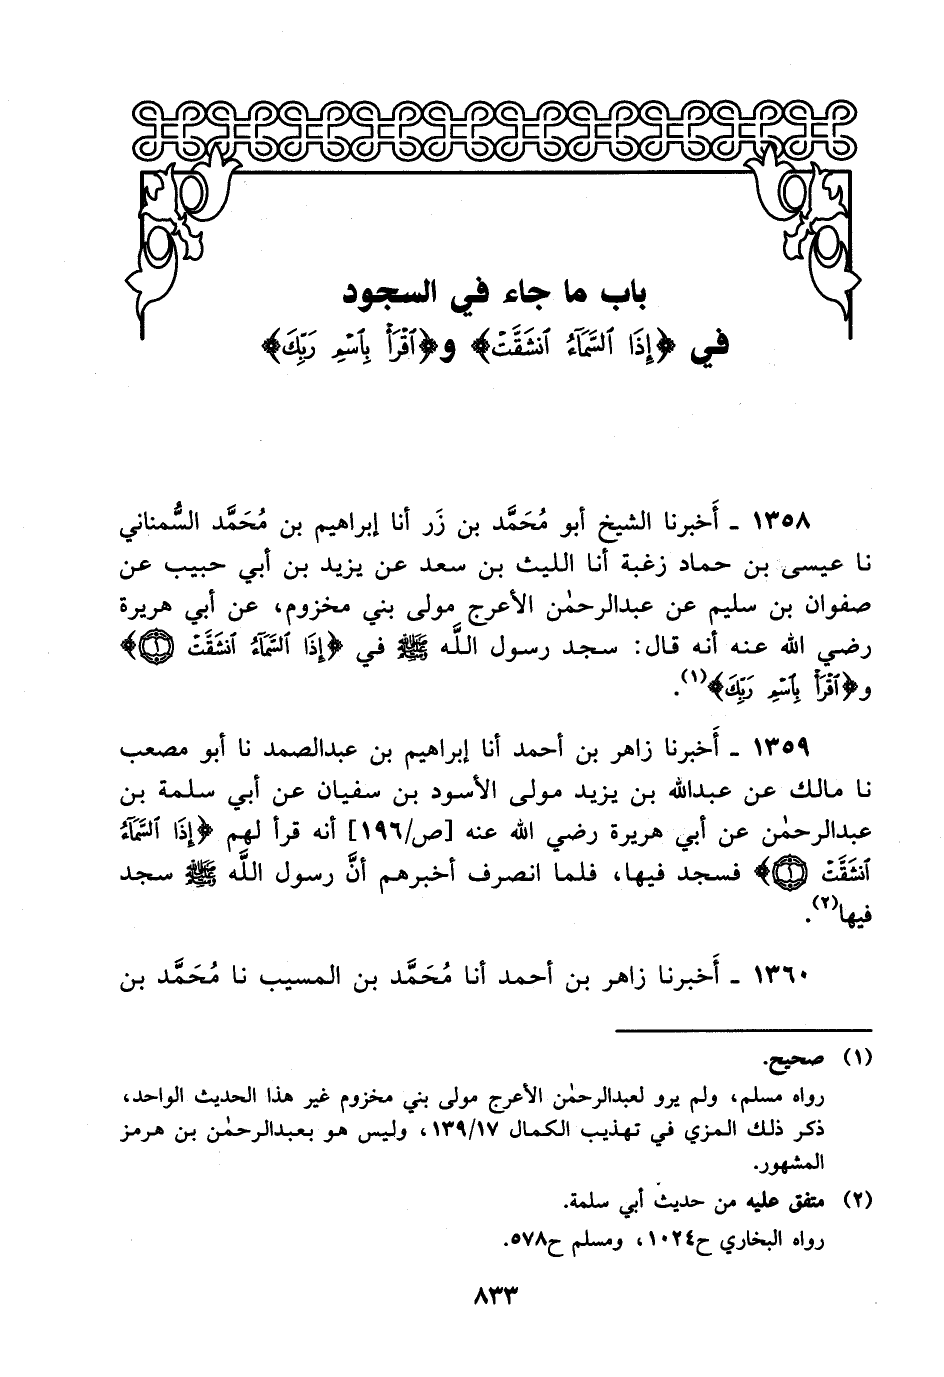 باب ما جاء في السجود
في ﴿إِذَا ٱلسَّمَآءُ ٱنشَقَّتْ﴾ و﴿ٱقْرَأْ بِٱسْمِ رَبِّكَ﴾
١٣٥٨ ـ أَخبرنا الشيخ أبو مُحَمَّد بن زَر أنا إبراهيم بن مُحَمَّد السُّمناني
نا عيسى بن حماد زغبة أنا الليث بن سعد عن يزيد بن أبي حبيب عن
صفوان بن سليم عن عبدالرحمٰن الأعرج مولى بني مخزوم، عن أبي هريرة
رضي الله عنه أنه قال: سجد رسول اللَّه ﷺ في ﴿إِذَا ٱلسَّمَآءُ ٱنشَقَّتْ ۝١﴾
و﴿ٱقْرَأْ بِٱسْمِ رَبِّكَ﴾(١).
١٣٥٩ ـ أَخبرنا زاهر بن أحمد أنا إبراهيم بن عبدالصمد نا أبو مصعب
نا مالك عن عبدالله بن يزيد مولى الأسود بن سفيان عن أبي سلمة بن
عبدالرحمٰن عن أبي هريرة رضي الله عنه [ص/١٩٦] أنه قرأ لهم ﴿إِذَا ٱلسَّمَآءُ
ٱنشَقَّتْ ۝١﴾ فسجد فيها، فلما انصرف أخبرهم أنَّ رسول اللَّه ﷺ سجد
فيها(٢).
١٣٦٠ ـ أَخبرنا زاهر بن أحمد أنا مُحَمَّد بن المسيب نا مُحَمَّد بن
(١) صحيح.
رواه مسلم، ولم يرو لعبدالرحمٰن الأعرج مولى بني مخزوم غير هذا الحديث الواحد،
ذكر ذلك المزي في تهذيب الكمال ١٣٩/١٧، وليس هو بعبدالرحمٰن بن هرمز
المشهور.
(٢) متفق عليه من حديث أبي سلمة.
رواه البخاري ح١٠٢٤، ومسلم ح٥٧٨.
٨٣٣